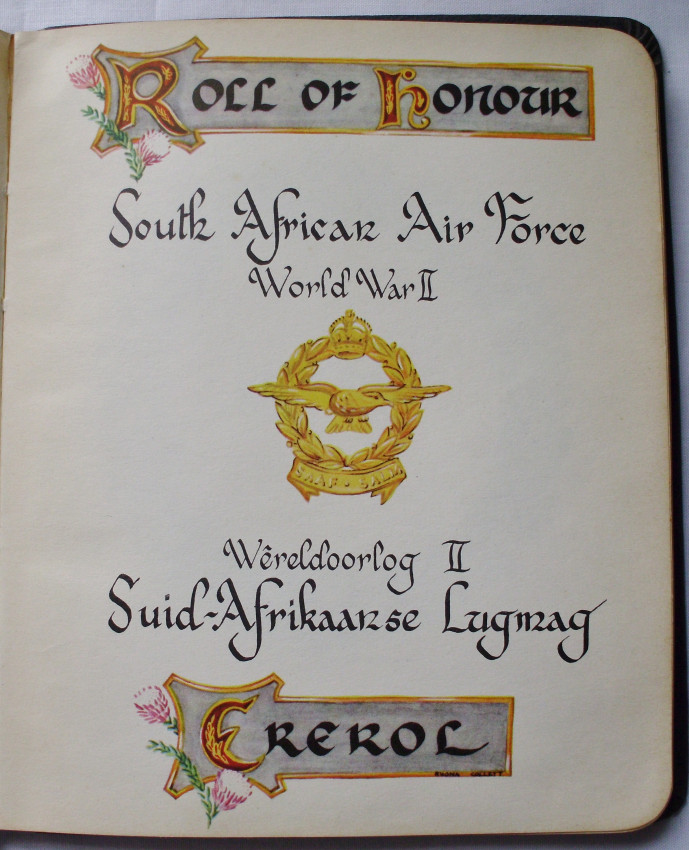 Roll of Honour
South African Air Force
World War II
SAAF · SALM
Wêreldoorlog II
Suid-Afrikaanse Lugmag
Ererol